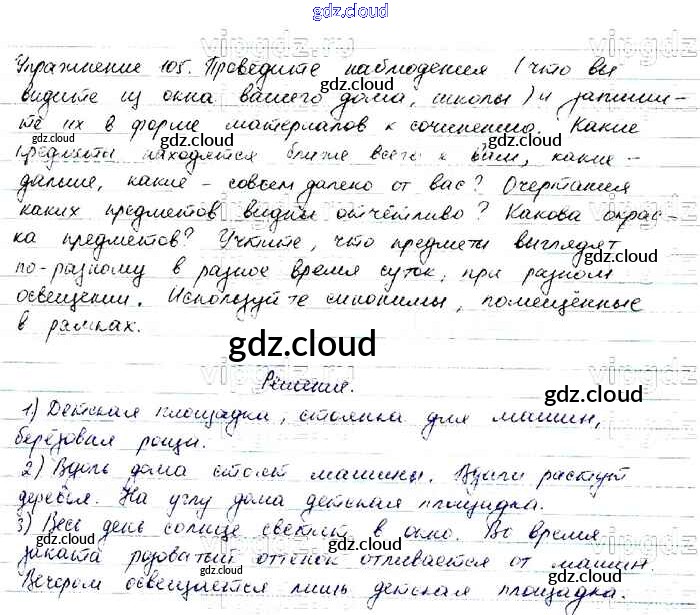 gdz.cloud
Упражнение 105. Проведите наблюдения (что вы
видите из окна вашего дома, школы) и запиши-
те их в форме материалов к сочинению. Какие
предметы находятся ближе всего к вам, какие -
дальше, какие - совсем далеко от вас? Очертания
каких предметов видны отчётливо? Какова окрас-
ка предметов? Учтите, что предметы выглядят
по-разному в разное время суток, при разном
освещении. Используйте синонимы, помещённые
в рамках.
gdz.cloud
Решение.
1) Детская площадка, стоянка для машин,
берёзовая роща.
2) Вдоль дома стоят машины. Вдали растут
деревья. На углу дома детская площадка.
3) Весь день солнце светит в окно. Во время
заката розоватый оттенок отливается от машин.
Вечером освещается лишь детская площадка.